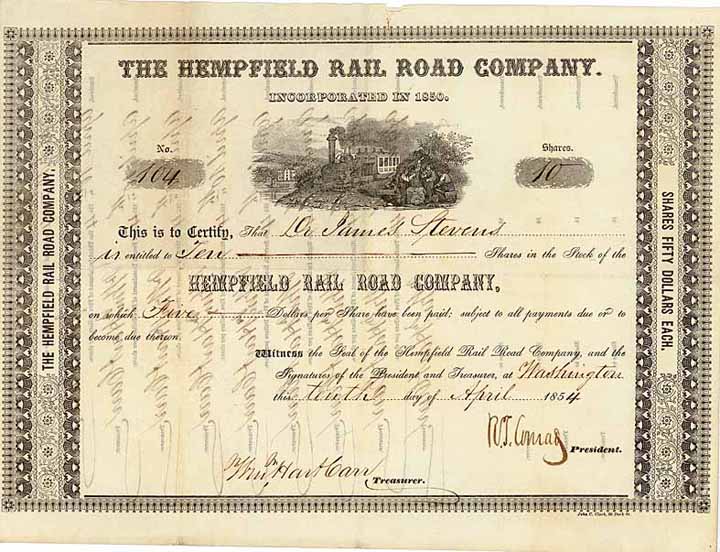 THE HEMPFIELD RAIL ROAD COMPANY.
INCORPORATED IN 1850.
No. Shares.
104 10
This is to Certify, That Dr James Stevens
is entitled to Ten Shares in the Stock of the
HEMPFIELD RAIL ROAD COMPANY,
on which Five Dollars per Share have been paid; subject to all payments due or to
become due thereon.
Witness the Seal of the Hempfield Rail Road Company, and the
Signatures of the President and Treasurer, at Washington
this tenth day of April 1854
R.T. Conrad President.
Treasurer.
THE HEMPFIELD RAIL ROAD COMPANY.
SHARES FIFTY DOLLARS EACH.